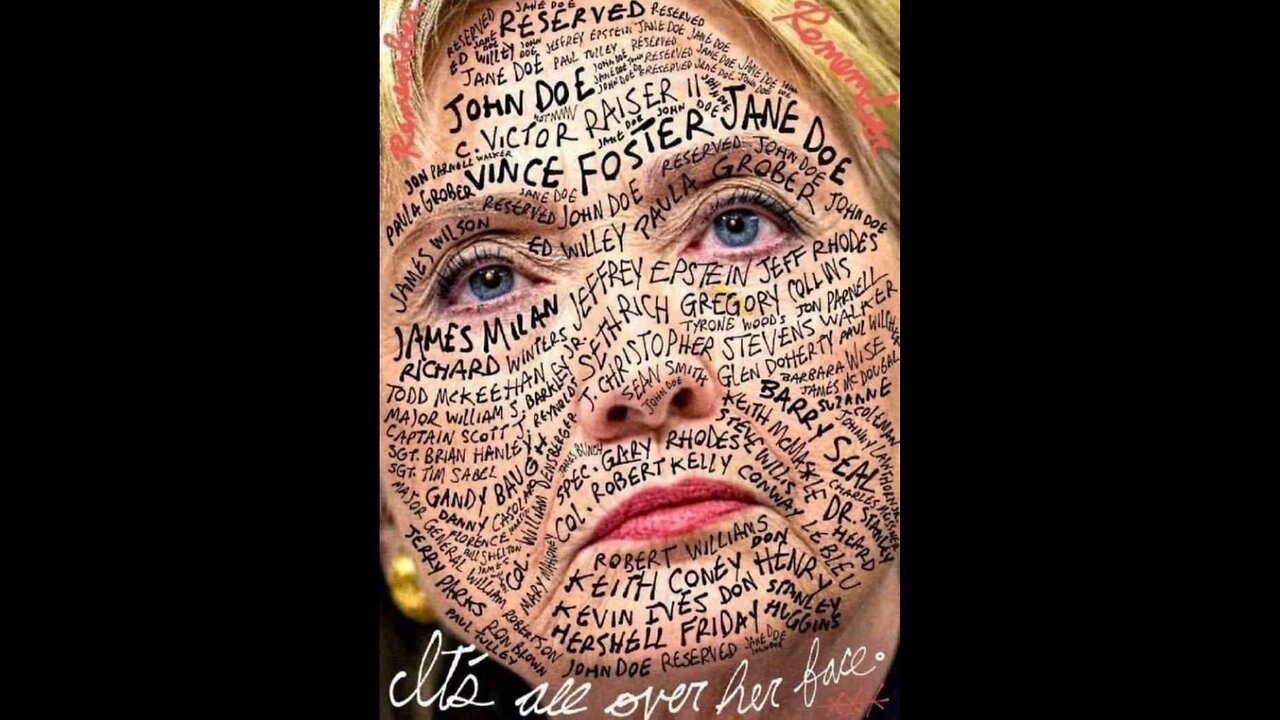 Remember
Remember
JANE DOE
RESERVED RESERVED RESERVED
ED WILLEY JOHN DOE JEFFREY EPSTEIN JANE DOE JANE DOE
JANE DOE PAUL TULLEY RESERVED
JOHN DOE
C. VICTOR RAISER II
JANE DOE
JON PARNELL WALKER
VINCE FOSTER
PAULA GROBER
JANE DOE
RESERVED JOHN DOE
RESERVED JOHN DOE
JAMES WILSON
ED WILLEY PAULA GROBER
JOHN DOE
JEFFREY EPSTEIN JEFF RHODES
JAMES MILAN
SETH RICH GREGORY COLLINS
RICHARD WINTERS
TYRONE WOODS JON PARNELL
TODD MCKEEHAN
J. CHRISTOPHER STEVENS WALKER
MAJOR WILLIAM S. BARKLEY JR.
SEAN SMITH
GLEN DOHERTY PAUL WILCHER
CAPTAIN SCOTT J. REYNOLDS
JOHN DOE
BARBARA WISE
SGT. BRIAN HANLEY
JAMES MCDOUGAL
SGT. TIM SABEL
BARRY SEAL
SUZANNE COLEMAN
KEITH MCMASKLE
STEVE WILLIS
SPEC. GARY RHODES
COL. ROBERT KELLY
CONWAY LEBLEU
DR. STANLEY HEARD
GANDY BAUGH
DANNY CASOLARO
FLORENCE MARTIN
COL. WILLIAM DENSBERGER
JAMES BUNCH
BILL SHELTON
MAJOR GENERAL WILLIAM ROBERTSON
MARY MAHONEY
JERRY PARKS
RON BROWN
PAUL TULLEY
ROBERT WILLIAMS
KEITH CONEY DON HENRY
KEVIN IVES DON STANLEY HUGGINS
HERSHELL FRIDAY
JOHN DOE RESERVED JANE DOE
It's all over her face.